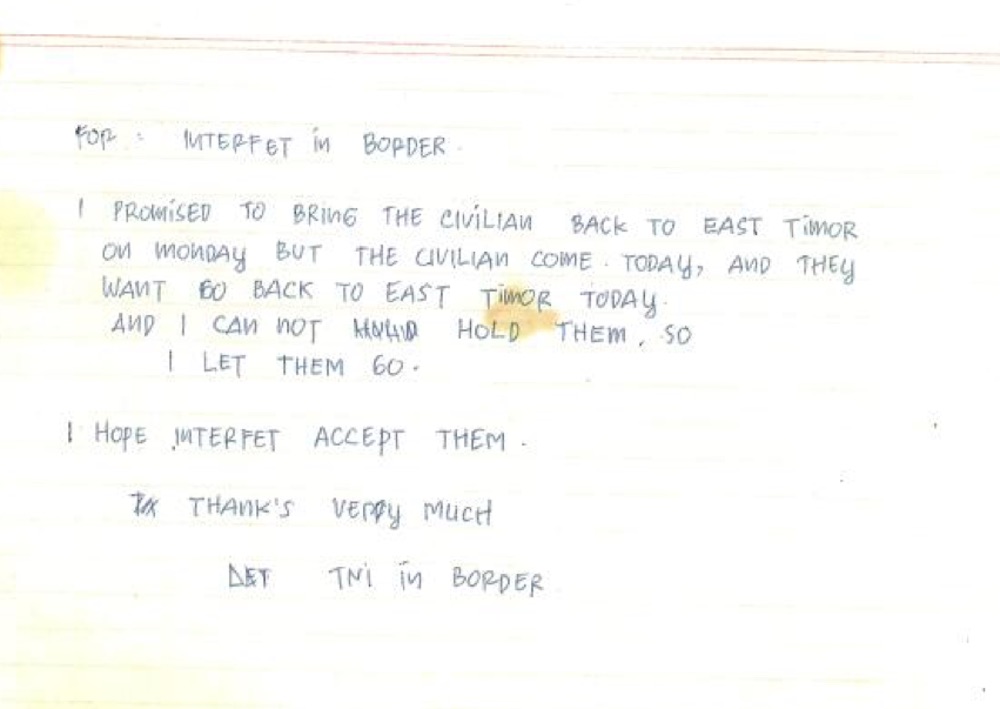 FOR : INTERFET in BORDER.
I PROMiSED TO BRinG THE CiViLiAN BACK TO EAST TiMOR
ON MONDAY BUT THE CIVILIAN COME. TODAY, AND THEY
WANT GO BACK TO EAST TIMOR TODAY.
AND I CAN NOT HOLD THEM, SO
I LET THEM GO.
I HOPE INTERFET ACCEPT THEM.
THANK'S VERRY MUCH
DET TNi in BORDER